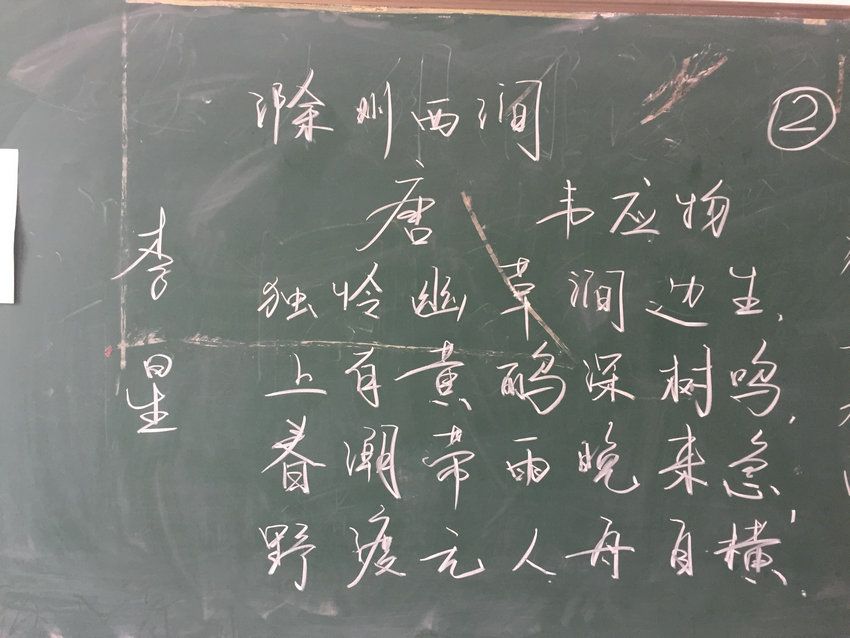 滁州西涧
②
唐 韦应物
独怜幽草涧边生,
上有黄鹂深树鸣,
春潮带雨晚来急,
野渡无人舟自横.
李星